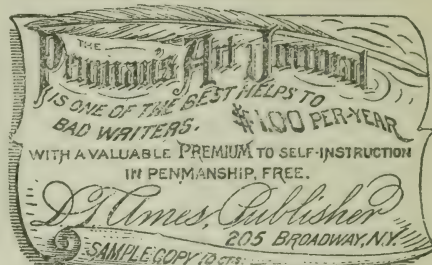 THE
Penman's Art Journal
IS ONE OF THE BEST HELPS TO
BAD WRITERS. $1.00 PER-YEAR
WITH A VALUABLE PREMIUM TO SELF-INSTRUCTION
IN PENMANSHIP, FREE.
D. T. Ames, Publisher
205 BROADWAY, N.Y.
SAMPLE COPY 10 CTS.